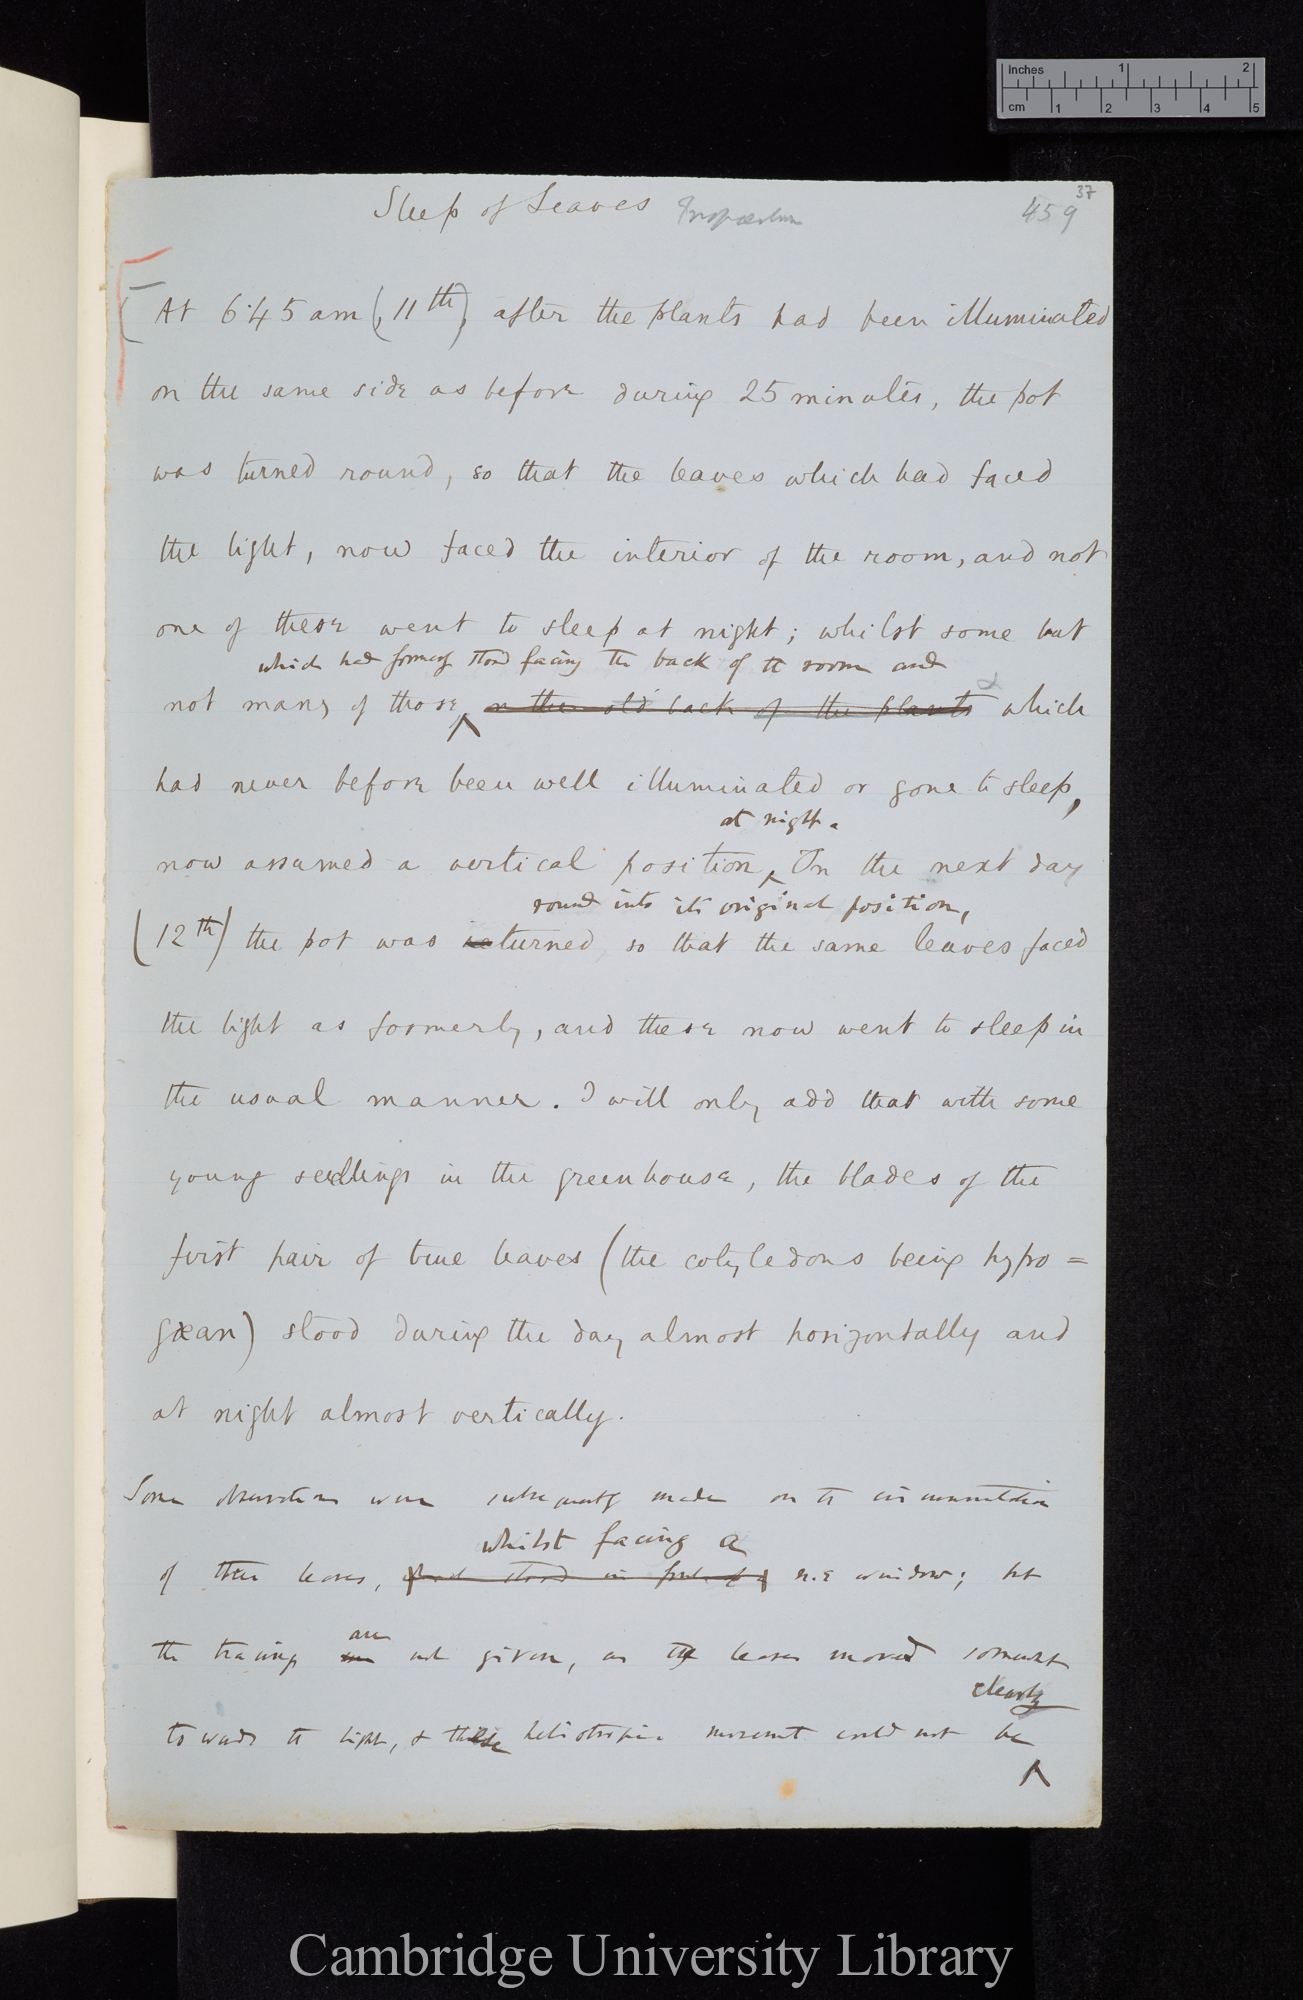 Inches 1 2
cm 1 2 3 4 5
37
Sleep of Leaves Tropæolum 459
At 6.45 am (11th), after the plants had been illuminated
on the same side as before during 25 minutes, the pot
was turned round, so that the leaves which had faced
the light, now faced the interior of the room, and not
one of these went to sleep at night; whilst some but
which had formerly stood facing the back of the room and
not many of those on the old back of the plants which
had never before been well illuminated or gone to sleep,
at night.
now assumed a vertical position In the next day
round into its original position,
(12th) the pot was turned so that the same leaves faced
the light as formerly, and these now went to sleep in
the usual manner. I will only add that with some
young seedlings in the greenhouse, the blades of the
first pair of true leaves (the cotyledons being hypo=
gæan) stood during the day almost horizontally and
at night almost vertically.
Some observations were subsequently made on the circumnutation
whilst facing a
of these leaves, stood in front of a n.e window; but
are
the tracings not given, as the leaves moved somewhat
clearly
towards the light, & these heliotropic movement could not be
Cambridge University Library